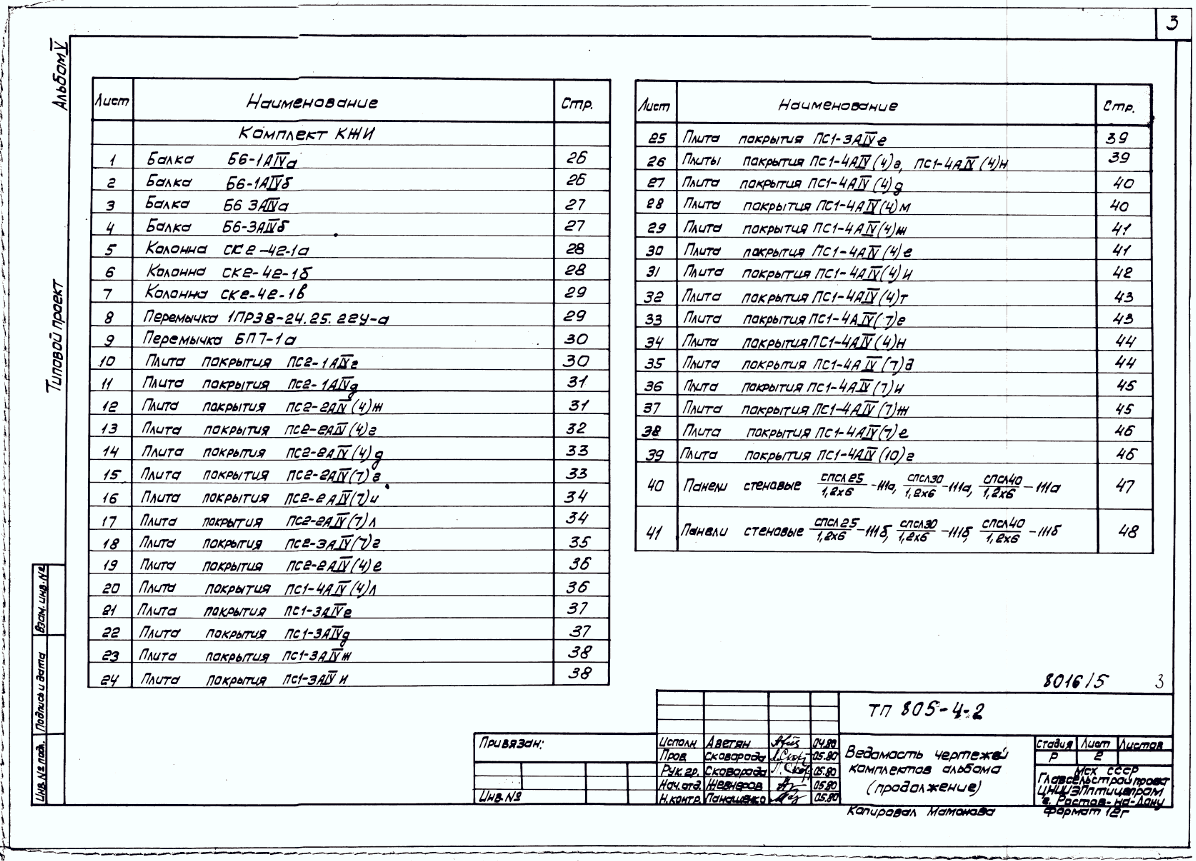 3
Альбом V
Типовой проект
Лист Наименование Стр.
Комплект КЖИ
1 Балка Б6-1АIVа 26
2 Балка Б6-1АIVб 26
3 Балка Б6 3АIVа 27
4 Балка Б6-3АIVб 27
5 Колонна СК2-42-1а 28
6 Колонна СК2-42-1б 28
7 Колонна СК2-42-1в 29
8 Перемычка 1ПР38-24.25.22у-а 29
9 Перемычка БП7-1а 30
10 Плита покрытия ПС2-1АIVг 30
11 Плита покрытия ПС2-1АIVд 31
12 Плита покрытия ПС2-2АIV(4)ж 31
13 Плита покрытия ПС2-2АIV(4)г 32
14 Плита покрытия ПС2-2АIV(4)д 33
15 Плита покрытия ПС2-2АIV(7)г 33
16 Плита покрытия ПС2-2АIV(7)и 34
17 Плита покрытия ПС2-2АIV(7)л 34
18 Плита покрытия ПС2-3АIV(7)г 35
19 Плита покрытия ПС2-2АIV(4)е 36
20 Плита покрытия ПС1-4АIV(4)л 36
21 Плита покрытия ПС1-3АIVе 37
22 Плита покрытия ПС1-3АIVд 37
23 Плита покрытия ПС1-3АIVж 38
24 Плита покрытия ПС1-3АIVи 38
Лист Наименование Стр.
25 Плита покрытия ПС1-3АIVе 39
26 Плиты покрытия ПС1-4АIV(4)г, ПС1-4АIV(4)н 39
27 Плита покрытия ПС1-4АIV(4)д 40
28 Плита покрытия ПС1-4АIV(4)м 40
29 Плита покрытия ПС1-4АIV(4)ж 41
30 Плита покрытия ПС1-4АIV(4)е 41
31 Плита покрытия ПС1-4АIV(4)и 42
32 Плита покрытия ПС1-4АIV(4)т 43
33 Плита покрытия ПС1-4АIV(7)е 43
34 Плита покрытия ПС1-4АIV(4)н 44
35 Плита покрытия ПС1-4АIV(7)д 44
36 Плита покрытия ПС1-4АIV(7)и 45
37 Плита покрытия ПС1-4АIV(7)ж 45
38 Плита покрытия ПС1-4АIV(7)е 46
39 Плита покрытия ПС1-4АIV(10)г 46
40 Панели стеновые СПСЛ25/1,2х6-111а, СПСЛ30/1,2х6-111а, СПСЛ40/1,2х6-111а 47
41 Панели стеновые СПСЛ25/1,2х6-111б, СПСЛ30/1,2х6-111б, СПСЛ40/1,2х6-111б 48
8016/5 3
Взам. инв. №
Подпись и дата
Инв. № подл.
Привязан:
Инв №
ТП 805-4-2
Исполн Аветян 04.80
Пров. Сковорода 05.80
Рук.гр. Сковорода 05.80
Нач.отд. 05.80
Н.контр. Панащенко 05.80
Ведомость чертежей
комплектов альбома
(продолжение)
Стадия Лист Листов
Р 2
МСХ СССР
Главсельстройпроект
ЦНИИЭПптицепром
г. Ростов-на-Дону
Копировал Мамонова Формат 12г